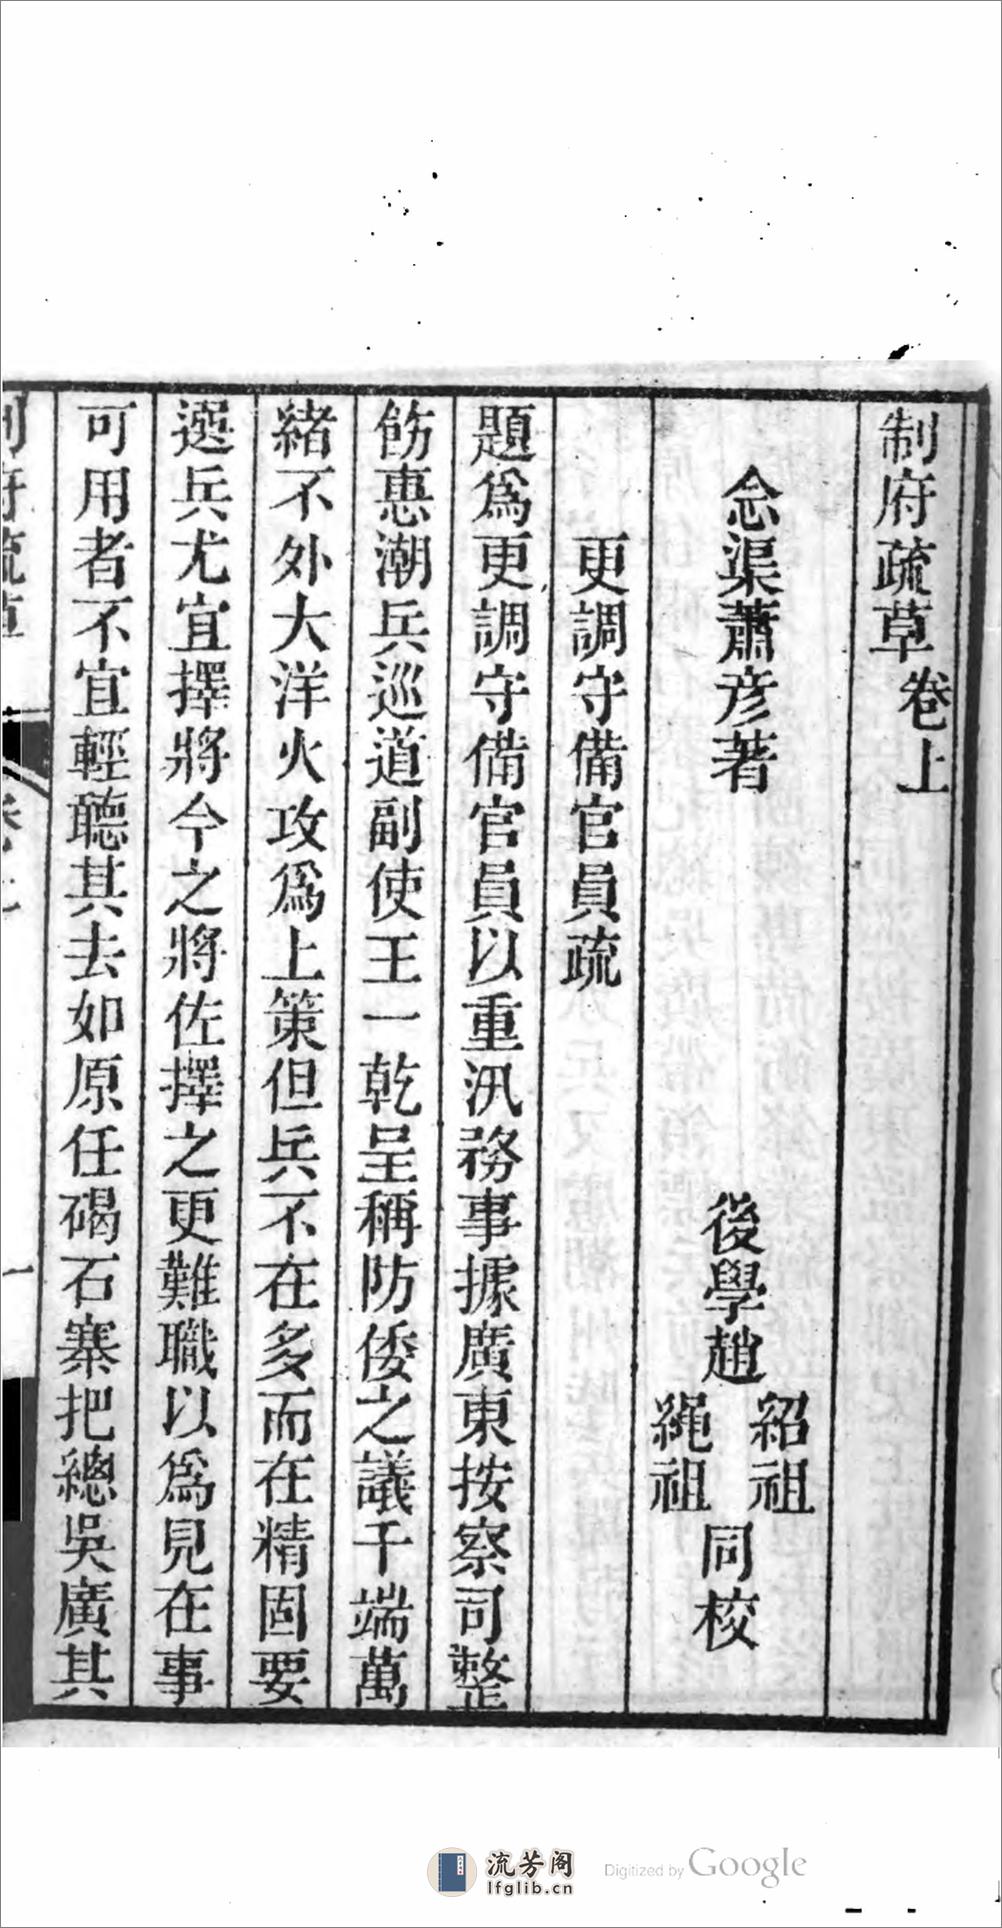 制府疏草卷上
念渠蕭彦著
後學趙紹祖繩祖同校
更調守備官員疏
題爲更調守備官員以重汛務事據廣東按察司整
飭惠潮兵巡道副使王一乾呈稱防倭之議千端萬
緒不外大洋火攻爲上策但兵不在多而在精固要
選兵尤宜擇將今之將佐擇之更難職以爲見在事
可用者不宜輕聽其去如原任碣石寨把總吳廣其
制府疏草
一
流芳阁
lfglib.cn
Digitized by Google